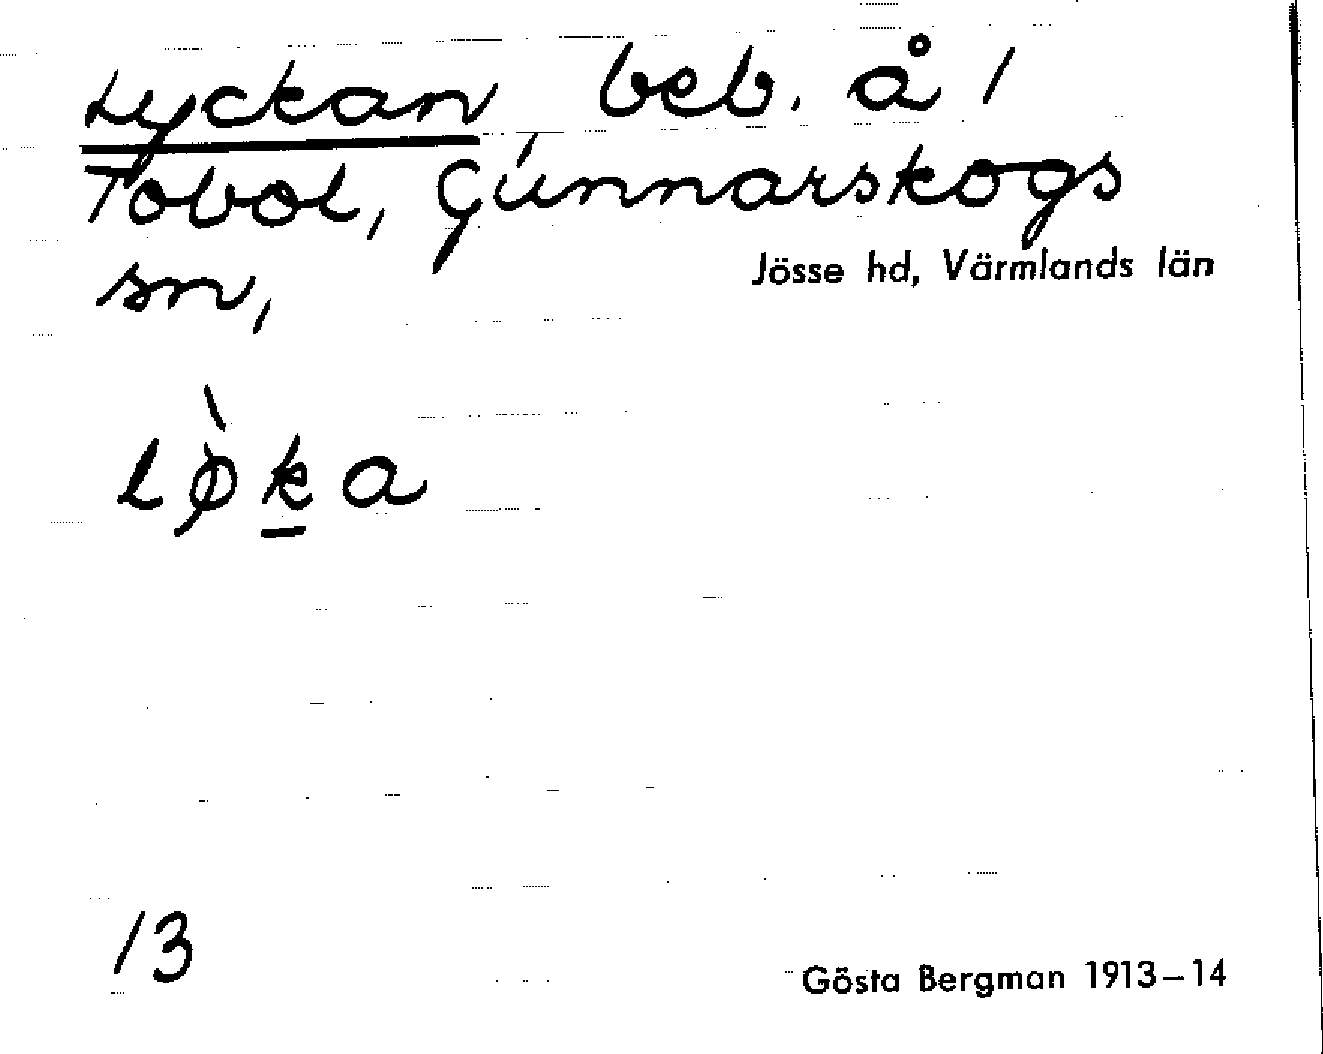 Lyckan, beb. å 1
Tobol, Gunnarskogs
sn,
Jösse hd, Värmlands län
lø̀k̲a
13
Gösta Bergman 1913–14